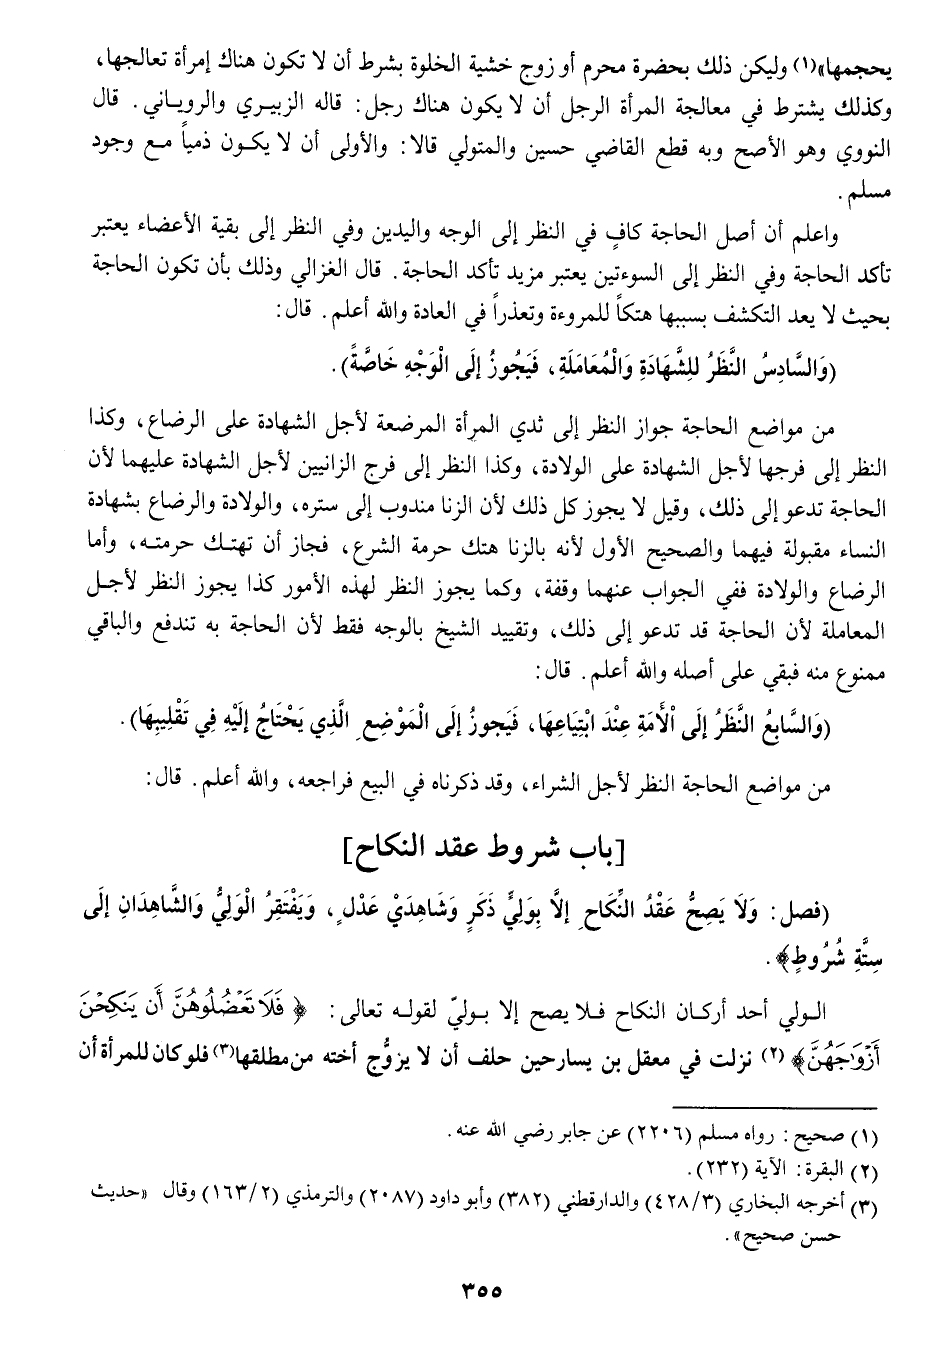 يحجمها»(١) وليكن ذلك بحضرة محرم أو زوج خشية الخلوة بشرط أن لا تكون هناك إمرأة تعالجها،
وكذلك يشترط في معالجة المرأة الرجل أن لا يكون هناك رجل: قاله الزبيري والروياني. قال
النووي وهو الأصح وبه قطع القاضي حسين والمتولي قالا: والأولى أن لا يكون ذمياً مع وجود
مسلم.
واعلم أن أصل الحاجة كافٍ في النظر إلى الوجه واليدين وفي النظر إلى بقية الأعضاء يعتبر
تأكد الحاجة وفي النظر إلى السوءتين يعتبر مزيد تأكد الحاجة. قال الغزالي وذلك بأن تكون الحاجة
بحيث لا يعد التكشف بسببها هتكاً للمروءة وتعذراً في العادة والله أعلم. قال:
(وَالسَّادِسُ النَّظَرُ للِشَّهَادَةِ وَالْمُعَامَلَةِ، فَيَجُوزُ إلَى الْوَجْهِ خَاصَّةً).
من مواضع الحاجة جواز النظر إلى ثدي المرأة المرضعة لأجل الشهادة على الرضاع، وكذا
النظر إلى فرجها لأجل الشهادة على الولادة، وكذا النظر إلى فرج الزانيين لأجل الشهادة عليهما لأن
الحاجة تدعو إلى ذلك، وقيل لا يجوز كل ذلك لأن الزنا مندوب إلى ستره، والولادة والرضاع بشهادة
النساء مقبولة فيهما والصحيح الأول لأنه بالزنا هتك حرمة الشرع، فجاز أن تهتك حرمته، وأما
الرضاع والولادة ففي الجواب عنهما وقفة، وكما يجوز النظر لهذه الأمور كذا يجوز النظر لأجل
المعاملة لأن الحاجة قد تدعو إلى ذلك، وتقييد الشيخ بالوجه فقط لأن الحاجة به تندفع والباقي
ممنوع منه فبقي على أصله والله أعلم. قال:
(وَالسَّابِعُ النَّظَرُ إلَى الْأَمَةِ عِنْدَ ابْتِيَاعِهَا، فَيَجوزُ إلَى الْمَوْضِعِ الَّذِي يَحْتَاجُ إلَيْهِ فِي تَقْلِيبِهَا).
من مواضع الحاجة النظر لأجل الشراء، وقد ذكرناه في البيع فراجعه، والله أعلم. قال:
[باب شروط عقد النكاح]
(فصل: وَلَا يَصِحُّ عَقْدُ النِّكَاحِ إلَّا بِوَلِيٍّ ذَكَرٍ وَشَاهِدَيْ عَدْلٍ، وَيَفْتَقِرُ الْوَلِيُّ وَالشَّاهِدَانِ إلَى
سِتَّةِ شُرُوطٍ﴾.
الولي أحد أركان النكاح فلا يصح إلا بوليّ لقوله تعالى: ﴿فَلَا تَعْضُلُوهُنَّ أَن يَنكِحْنَ
أَزْوَٰجَهُنَّ﴾(٢) نزلت في معقل بن يسارحين حلف أن لا يزوُّج أخته من مطلقها(٣) فلو كان للمرأة أن
(١) صحيح: رواه مسلم (٢٢٠٦) عن جابر رضي الله عنه.
(٢) البقرة: الآية (٢٣٢).
(٣) أخرجه البخاري (٤٢٨/٣) والدارقطني (٣٨٢) وأبو داود (٢٠٨٧) والترمذي (١٦٣/٢) وقال «حديث
حسن صحيح».
٣٥٥